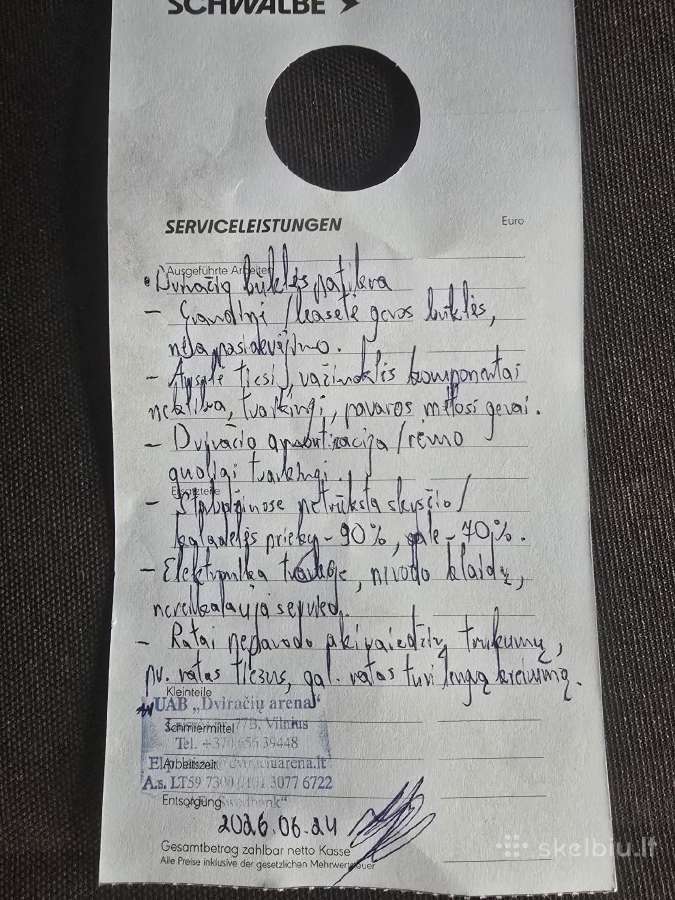 SCHWALBE
SERVICELEISTUNGEN
Euro
Ausgeführte Arbeiten
• Dviračio būklės patikra
- Grandinė / kasetė geros būklės,
nėra pasidėvėjimo.
- Auselė tiesi, važiuoklės komponentai
nekliba, tvarkingi, pavaros mėtosi gerai.
- Dviračio amortizacija / rėmo
guoliai tvarkingi.
Ersatzteile
- Stabdžiuose netrūksta skysčio /
kaladėlės prieky - 90%, gale - 70%.
- Elektronika tvarkoje, nerodo klaidų,
nereikalauja serviso.
- Ratai nepavodo akivaizdžių trukumų,
pr. ratas tiesus, gal. ratas turi lengvą kreivumą.
Kleinteile
UAB „Dviračių arena"
Schmiermittel 77B, Vilnius
Tel. +370 39448
Arbeitszeit arena.lt
A.s. LT59 7300 3077 6722
Entsorgung
2026.06.24
Gesamtbetrag zahlbar netto Kasse
Alle Preise inklusive der gesetzlichen Mehrwertsteuer
skelbiu.lt